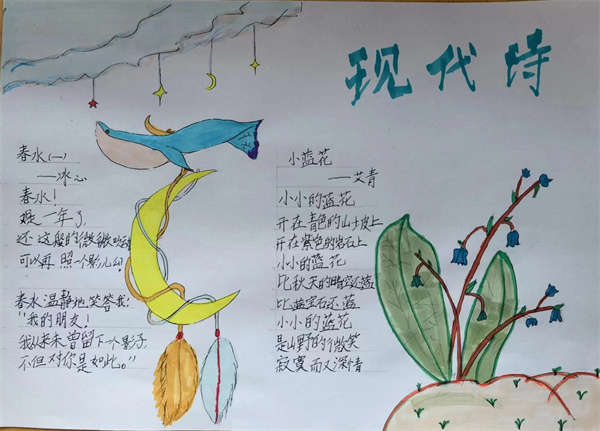 现代诗
春水(一)
——冰心
春水!
又是一年了,
还这般的微微吹动
可以再照一个影儿么!
春水温静地笑答我:
“我的朋友!
我从来未曾留下一个影子
不但对你是如此。”
小蓝花
——艾青
小小的蓝花
开在青色的山坡上
开在紫色的岩石上
小小的蓝花
比秋天的晴空还蓝
比蓝宝石还蓝
小小的蓝花
是山野的微笑
寂寞而又深情